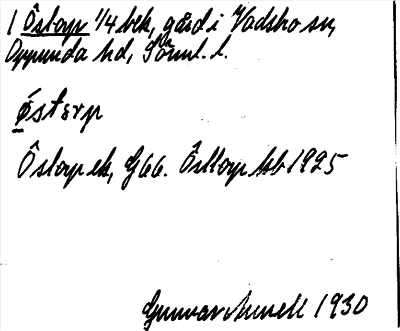 1 Östorp 1/4 bek, gård i Vadsbro sn,
Oppunda hd, Söml. l.
östsrp
Östorp ek, G 66. Östtorp hb 1925
Gunnar 1930